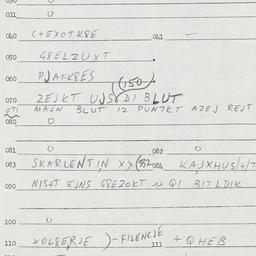 030 O
031 O
040 C+EXOTK8E 041 —
050 G8ELZUXT
060 PJAFK8ES
(150)
070 ZEJKT UJS DI BLUT
071 MAJN BLUT IZ PUNJKT AZEJ REJT
080 O
081 O 082 O
083 SKARLENTIN XX (332 084 KAJXHUS/+/T
090 NIS+T EJNS G8EZOKT XX QI BITLDIK
100 O
110 XOL8ERJE )-FILENCJE 111 + QHEB